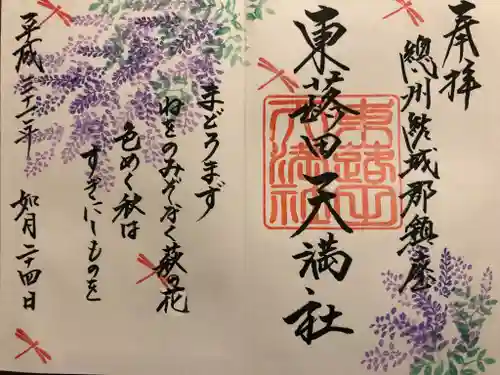 奉拝
總州結城郡鎮座
東蕗田天満社
東蕗田天満社
まどろまず
ねをのみぞなく萩の花
色めく秋は
すぎにしものを
平成三十一年 如月二十四日